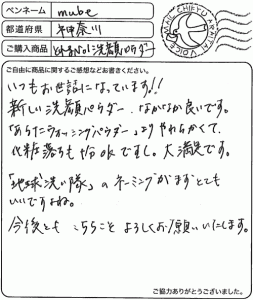 ペンネーム mube
都道府県 神奈川
ご購入商品 洗顔パウダー
MINI CHIKYU ARAITAI VOICE
ご自由に商品に関するご感想などお書きください。
いつもお世話になっています!!
新しい洗顔パウダー、なかなか良いです。
「あらたにウォッシングパウダー」よりやわらかくて、
化粧落ちも十分OKですし。大満足です。
「地球洗い隊」のネーミングがまずとても
いいですよね。
今後とも こちらこそ よろしくお願いいたします。
ご協力ありがとうございました。